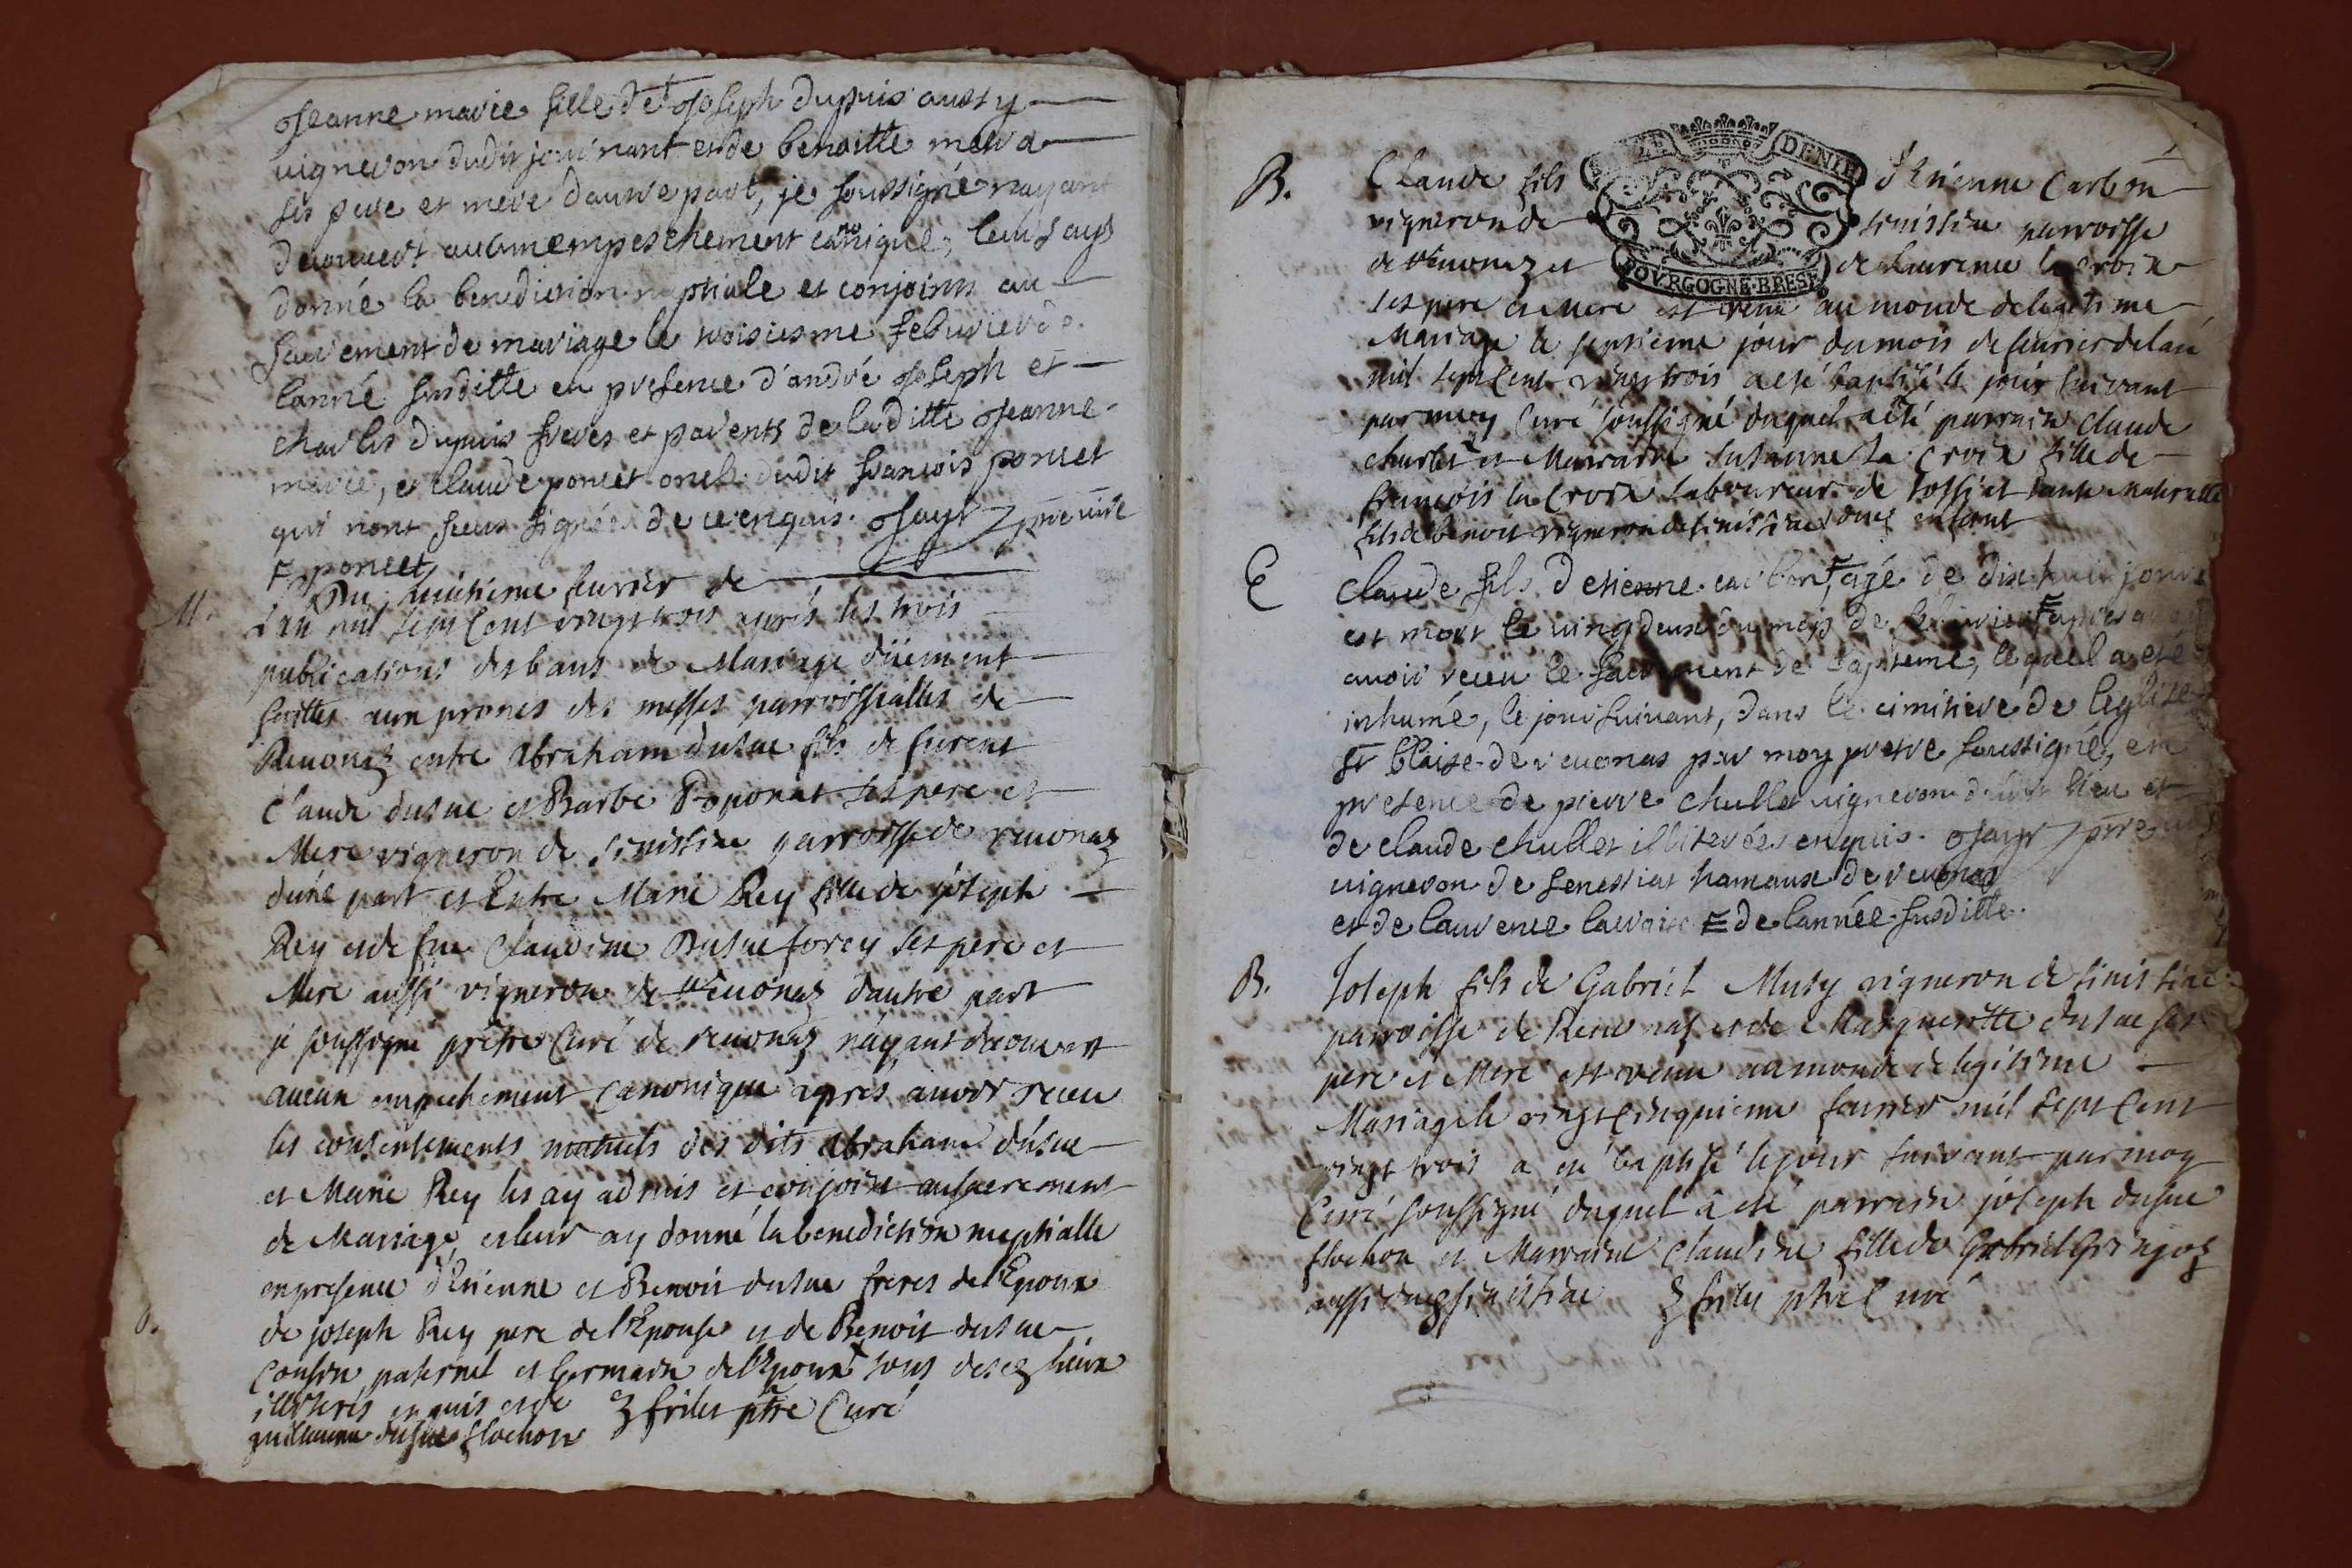 Jeanne marie fille de Joseph dupuis aussy
vigneron dudit jouinant et de benoitte
ses pere et mere dautre part, je soussigné nayant
decouvert aucun empeschement canonique, leurs ays
donné la benediction nuptiale et conjoints au
sacrement de mariage le troisiesme febuvier de
lanné susditte en presence d'andré Joseph et
charles dupuis freres et parents de laditte Jeanne
marie, et claude poncet oncle dudit francois poncet
qui nont sceus signés de ce enquis. Jayr pretre vire
F poncet
M. Du huitieme feurier de
L'an mil sept Cent vingt trois aprés les trois
publications des bans de Mariage düement
faittes aux prones des messes parroissialles de
Reuonaz entre Abraham dusue fils de furent
Claude dusue et Barbe Poponat ses pere et
Mere vigneron de sinistiac parroisse de reuonaz
d'une part et Entre Marie Rey fille de joseph
Rey et de fue Claudine Dusue forey ses pere et
Mere aussi vigneron de reuonaz dautre part
je soussigné prêtre Curé de reuonaz n'ayant decouvert
aucun empechement Canonique apres auoir receu
les consentements mutuels des dits Abraham dusue
et Marie Rey les ay admis et conjoint au sacrement
de Mariage et leur ay donné la benediction nuptialle
en presence d'Etienne et Benoit dusue freres de l'Epoux
de joseph Rey pere de l'Epouse et de Benoit dusue
Cousin paternel et Germain de l'Epoux tous desez lieux
illiterés enquis et de frilet ptre Curé
guillaume dusue flochon
B. Claude fils d'Etienne Carbon
vigneron de sinistiac parroisse
de reuonaz et de laurence la croix
ses pere et Mere est venu au monde de legitime
Mariage le septieme jour du mois de feurier de lan
mil sept Cent vingt trois a eté baptisé le jour suivant
par moy Curé soussigné duquel a eté parrain Claude
chullet et Marraine susanne la Croix fille de
francois la Croix laboureur de tossiat tante Maternelle
fils de benoit vigneron de sinistiac dud enfant
E Claude fils d'etienne carbon F agé de dix huit jours
est mort le vingdeux du mois de febuvier F apres
avoir receu le sacrement de baptême, lequel a eté
inhumé, le jour suivant, dans le cimitiere de leglise
St blaise de reuonas par moy pretre soussigné, en
presence de pierre chullet vigneron dudit lieu et
de claude chullet illiterées enquis. Jayr pretre
vigneron de senestiat hamaux de reuonas
et de laurence lacroix F de lannée susditte.
B. Joseph fils de Gabriel Musy vigneron de sinistiac
parroisse de Reuonas et de Margueritte dusue ses
pere et Mere est venu au monde de legitime
Mariage le vingt Cinquieme feurier mil sept Cent
vingt trois a eté baptisé le jour suivant par moy
Curé soussigné duquel à eté parrain joseph dusue
flochon et Marraine Claudine fille de Gabriel Gringoz
aussi dud sinistiac frilet ptre Curé
DENIE
BOVRGOGNE BRESSE